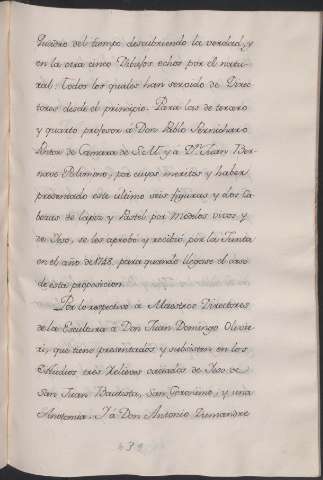 Quadro del tiempo descubriendo la verdad, y
en la otra cinco Dibujos echos por el natu-
ral: Todos los quales han servido de Direc-
tores desde el principio. Para las de tercero
y quarto profesor à Don Pablo Pernicharo
Pintor de Camara de S.M. y a Dn. Juan Ber-
nave Palomino, por cuyos meritos y haber
presentado este ultimo seis figuras y dos Ca-
bezas de lapiz y Pastel por Modelos vivos y
de Yeso, se les aprobó y recibió por la Junta
en el año de 1748. para quando llegase el caso
de esta proposicion.
Por lo respectivo a Maestros Directores
de la Escultura à Don Juan Domingo Olivie-
ri, que tiene presentados y subsisten en los
Estudios tres Relieves vaciados de Yeso de
San Juan Bautista, San Geronimo, y una
Anotomia. Y à Don Antonio Dumandre